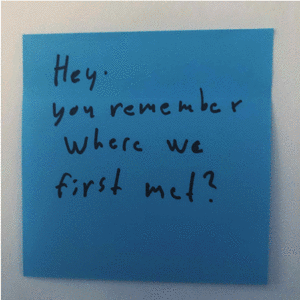 Hey.
you remember
where we
first met?